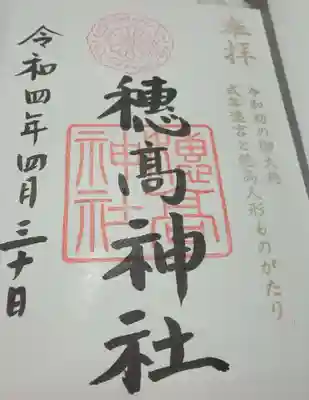 奉拝
令和初の御大祭
式年遷宮と穂高人形ものがたり
穂髙神社
令和四年四月三十日